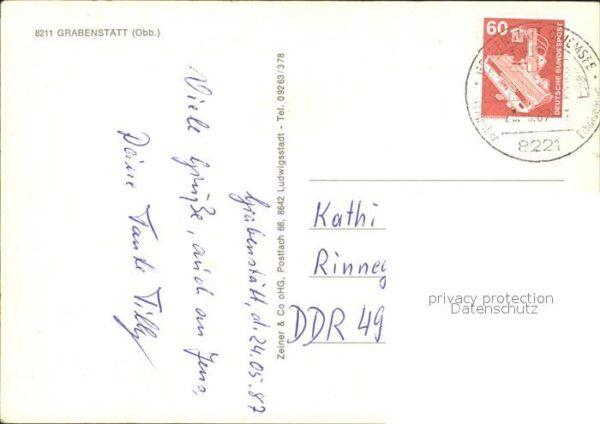 8211 GRABENSTÄTT (Obb.)
Grabenstätt, d. 24.05.87
Viele Grüße, auch an Jens,
Deine Tante Tilly
Zeiner & Co oHG, Postfach 66, 8642 Ludwigsstadt - Tel. 09263/378
60
DEUTSCHE BUNDESPOST
8221
Kathi
Rinneg
DDR 49
privacy protection
Datenschutz